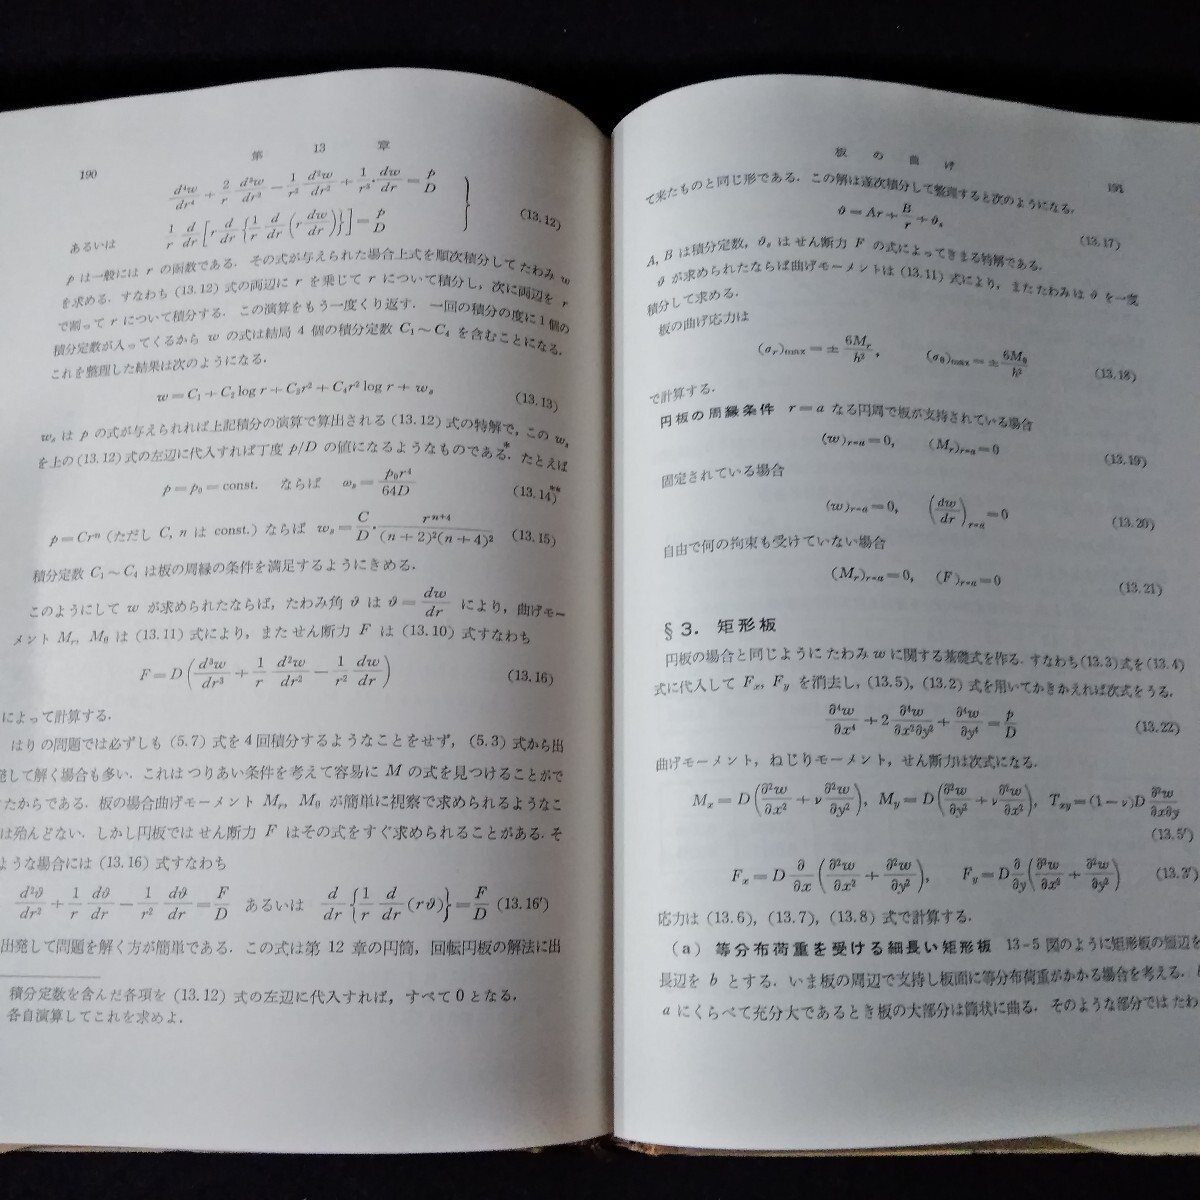 190
第 13 章
d⁴w/dr⁴ + 2/r d³w/dr³ − 1/r² d²w/dr² + 1/r³・dw/dr = p/D
あるいは 1/r d/dr[r d/dr{1/r d/dr(r dw/dr)}] = p/D (13.12)
p は一般には r の函数である．その式が与えられた場合上式を順次積分して たわみ w
を求める．すなわち (13.12) 式の両辺に r を乗じて r について積分し，次に両辺を r
で割って r について積分する．この演算をもう一度くり返す．一回の積分の度に1個の
積分定数が入ってくるから w の式は結局 4 個の積分定数 C₁～C₄ を含むことになる．
これを整理した結果は次のようになる．
w = C₁ + C₂ log r + C₃r² + C₄r² log r + wₛ (13.13)
wₛ は p の式が与えられれば上記積分の演算で算出される (13.12) 式の特解で，この wₛ
を上の (13.12) 式の左辺に代入すれば丁度 p/D の値になるようなものである*．たとえば
p = p₀ = const. ならば ωₛ = p₀r⁴/64D (13.14)**
p = Crⁿ (ただし C, n は const.) ならば wₛ = C/D・rⁿ⁺⁴/(n+2)²(n+4)² (13.15)
積分定数 C₁～C₄ は板の周縁の条件を満足するようにきめる．
このようにして w が求められたならば，たわみ角 ϑ は ϑ = dw/dr により，曲げモー
メント Mᵣ, M_θ は (13.11) 式により，また せん断力 F は (13.10) 式すなわち
F = D(d³w/dr³ + 1/r d²w/dr² − 1/r² dw/dr) (13.16)
によって計算する．
はりの問題では必ずしも (5.7) 式を4回積分するようなことをせず，(5.3) 式から出
発して解く場合も多い．これはつりあい条件を考えて容易に M の式を見つけることがで
たからである．板の場合曲げモーメント Mᵣ, M_θ が簡単に視察で求められるようなこ
は殆んどない．しかし円板では せん断力 F はその式をすぐ求められることがある．そ
ような場合には (13.16) 式すなわち
d²ϑ/dr² + 1/r dϑ/dr − 1/r² dϑ/dr = F/D あるいは d/dr{1/r d/dr(rϑ)} = F/D (13.16′)
出発して問題を解く方が簡単である．この式は第 12 章の円筒，回転円板の解法に出
積分定数を含んだ各項を (13.12) 式の左辺に代入すれば，すべて0となる．
各自演算してこれを求めよ．
板の曲げ
191
て来たものと同じ形である．この解は逐次積分して整理すると次のようになる．
ϑ = Ar + B/r + ϑₛ (13.17)
A, B は積分定数，ϑₛ はせん断力 F の式によってきまる特解である．
ϑ が求められたならば曲げモーメントは (13.11) 式により，また たわみは ϑ を一度
積分して求める．
板の曲げ応力は
(σᵣ)max = ± 6Mᵣ/h², (σ_θ)max = ± 6M_θ/h² (13.18)
で計算する．
円板の周縁条件 r=a なる円周で板が支持されている場合
(w)r=a = 0, (Mᵣ)r=a = 0 (13.19)
固定されている場合
(w)r=a = 0, (dw/dr)r=a = 0 (13.20)
自由で何の拘束も受けていない場合
(Mᵣ)r=a = 0, (F)r=a = 0 (13.21)
§3. 矩形板
円板の場合と同じように たわみ w に関する基礎式を作る．すなわち(13.3)式を(13.4)
式に代入して Fₓ, F_y を消去し，(13.5), (13.2) 式を用いてかきかえれば次式をうる．
∂⁴w/∂x⁴ + 2 ∂⁴w/∂x²∂y² + ∂⁴w/∂y⁴ = p/D (13.22)
曲げモーメント，ねじりモーメント，せん断力は次式になる．
Mₓ = D(∂²w/∂x² + ν ∂²w/∂y²), M_y = D(∂²w/∂y² + ν ∂²w/∂x²), T_xy = (1−ν)D ∂²w/∂x∂y
(13.5′)
Fₓ = D ∂/∂x(∂²w/∂x² + ∂²w/∂y²), F_y = D ∂/∂y(∂²w/∂x² + ∂²w/∂y²) (13.3′)
応力は (13.6), (13.7), (13.8) 式で計算する．
(a) 等分布荷重を受ける細長い矩形板 13-5 図のように矩形板の短辺を
長辺を b とする．いま板の周辺で支持し板面に等分布荷重がかかる場合を考える．
a にくらべて充分大であるとき板の大部分は筒状に曲る．そのような部分では たわ